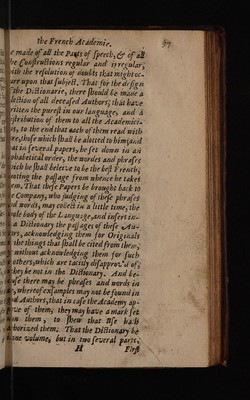 the French Academie. 57
e made of all the Parts of speech, & of all
he Constructions regular and irregular,
ith the resolution of doubts that might oc-
urr upon that subject. That for the design
the Dictionarie, there should be made a
llection of all deceased Authors, that have
ritten the purest in our language, and a
istribution of them to all the Academici-
ns, to the end that each of them read with
re, those which shall be allotted to him; and
at in several papers, he set down in an
phabetical order, the wordes and phrases
hich he shall beleeve to be the best French,
oting the passage from whence he taket
em. That these Papers be brought back to
e Company, who judging of these phrases
nd words, may collect in a little time, the
hole body of the Language, and insert in-
a Dictionary the passages of these Au-
ors, acknowledging them for Originals
the things that shall be cited from them,
without acknowledging them for such
others, which are tacitly disapprov'd of,
they be not in the Dictionary. And be-
use there may be phrases and words in
, whereof examples may not be found in
od Authors, that in case the Academy ap-
ve of them, they may have a mark set
on them, to shew that Use hath
thorized them. That the Dictionary be
one volume, but in two several parts,
H First